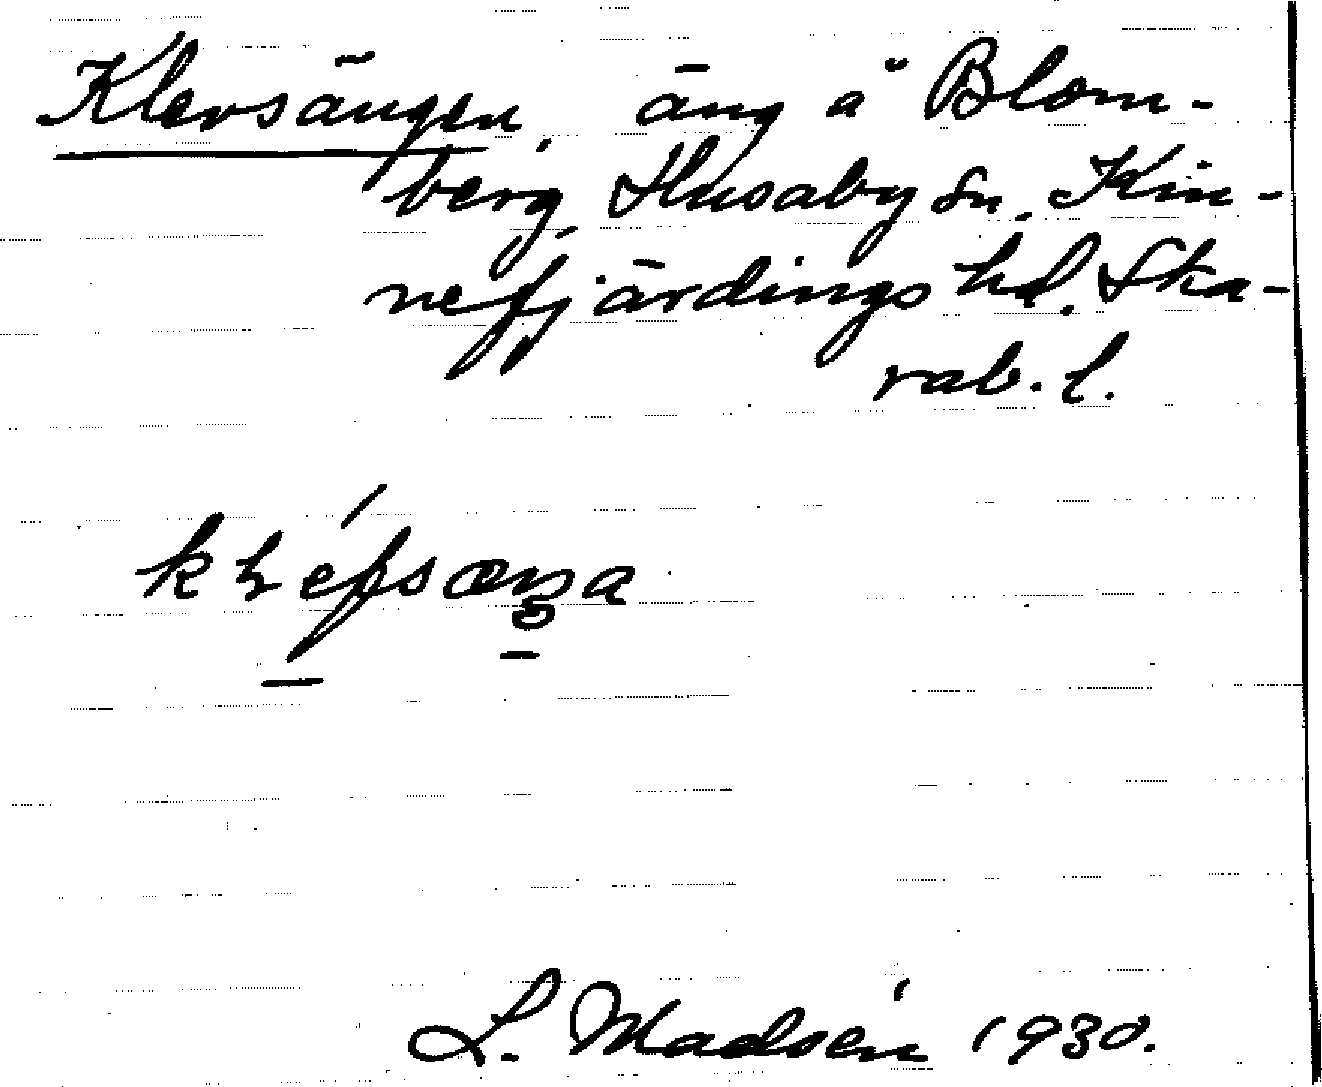 Klevsängen, äng å Blom-
berg, Husaby sn, Kin-
nefjärdings hd. Ska-
rab. l.
L. Madsén 1930.